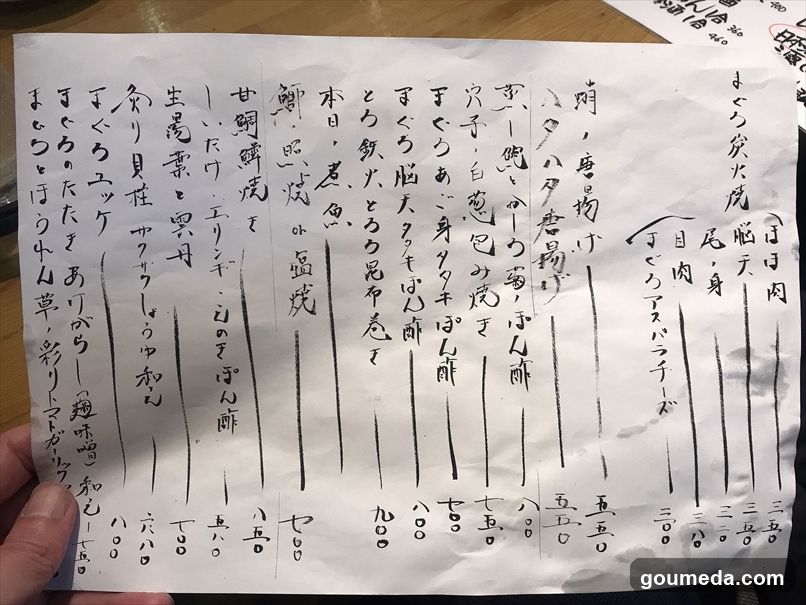 まぐろ炭火焼
ほほ肉 三五〇
脳天 三五〇
尾ノ身 三二〇
目肉 三八〇
まぐろアスパラチーズ 三〇〇
蛸ノ唐揚げ 五五〇
ハタハタ唐揚げ 五五〇
蒸し鮑とかしろ菊ノぽん酢 八〇〇
穴子ノ白葱包み焼き 七五〇
まぐろあご身タタキぽん酢 七〇〇
まぐろ脳天タタキぽん酢 八〇〇
とろ鉄火とろろ昆布巻き 九〇〇
本日ノ煮魚
鰤ノ照焼 or 塩焼 七〇〇
甘鯛鱗焼き 八五〇
しいたけ・エリンギ・えのきぽん酢 五八〇
生湯葉と雲丹 七〇〇
炙り貝柱サクサクしょうゆ和え 六八〇
まぐろユッケ 八〇〇
まぐろのたたきあげがらし(麹味噌)和え 七五〇
まぐろとほうれん草ノ彩りトマトガーリック
360
460
400
goumeda.com